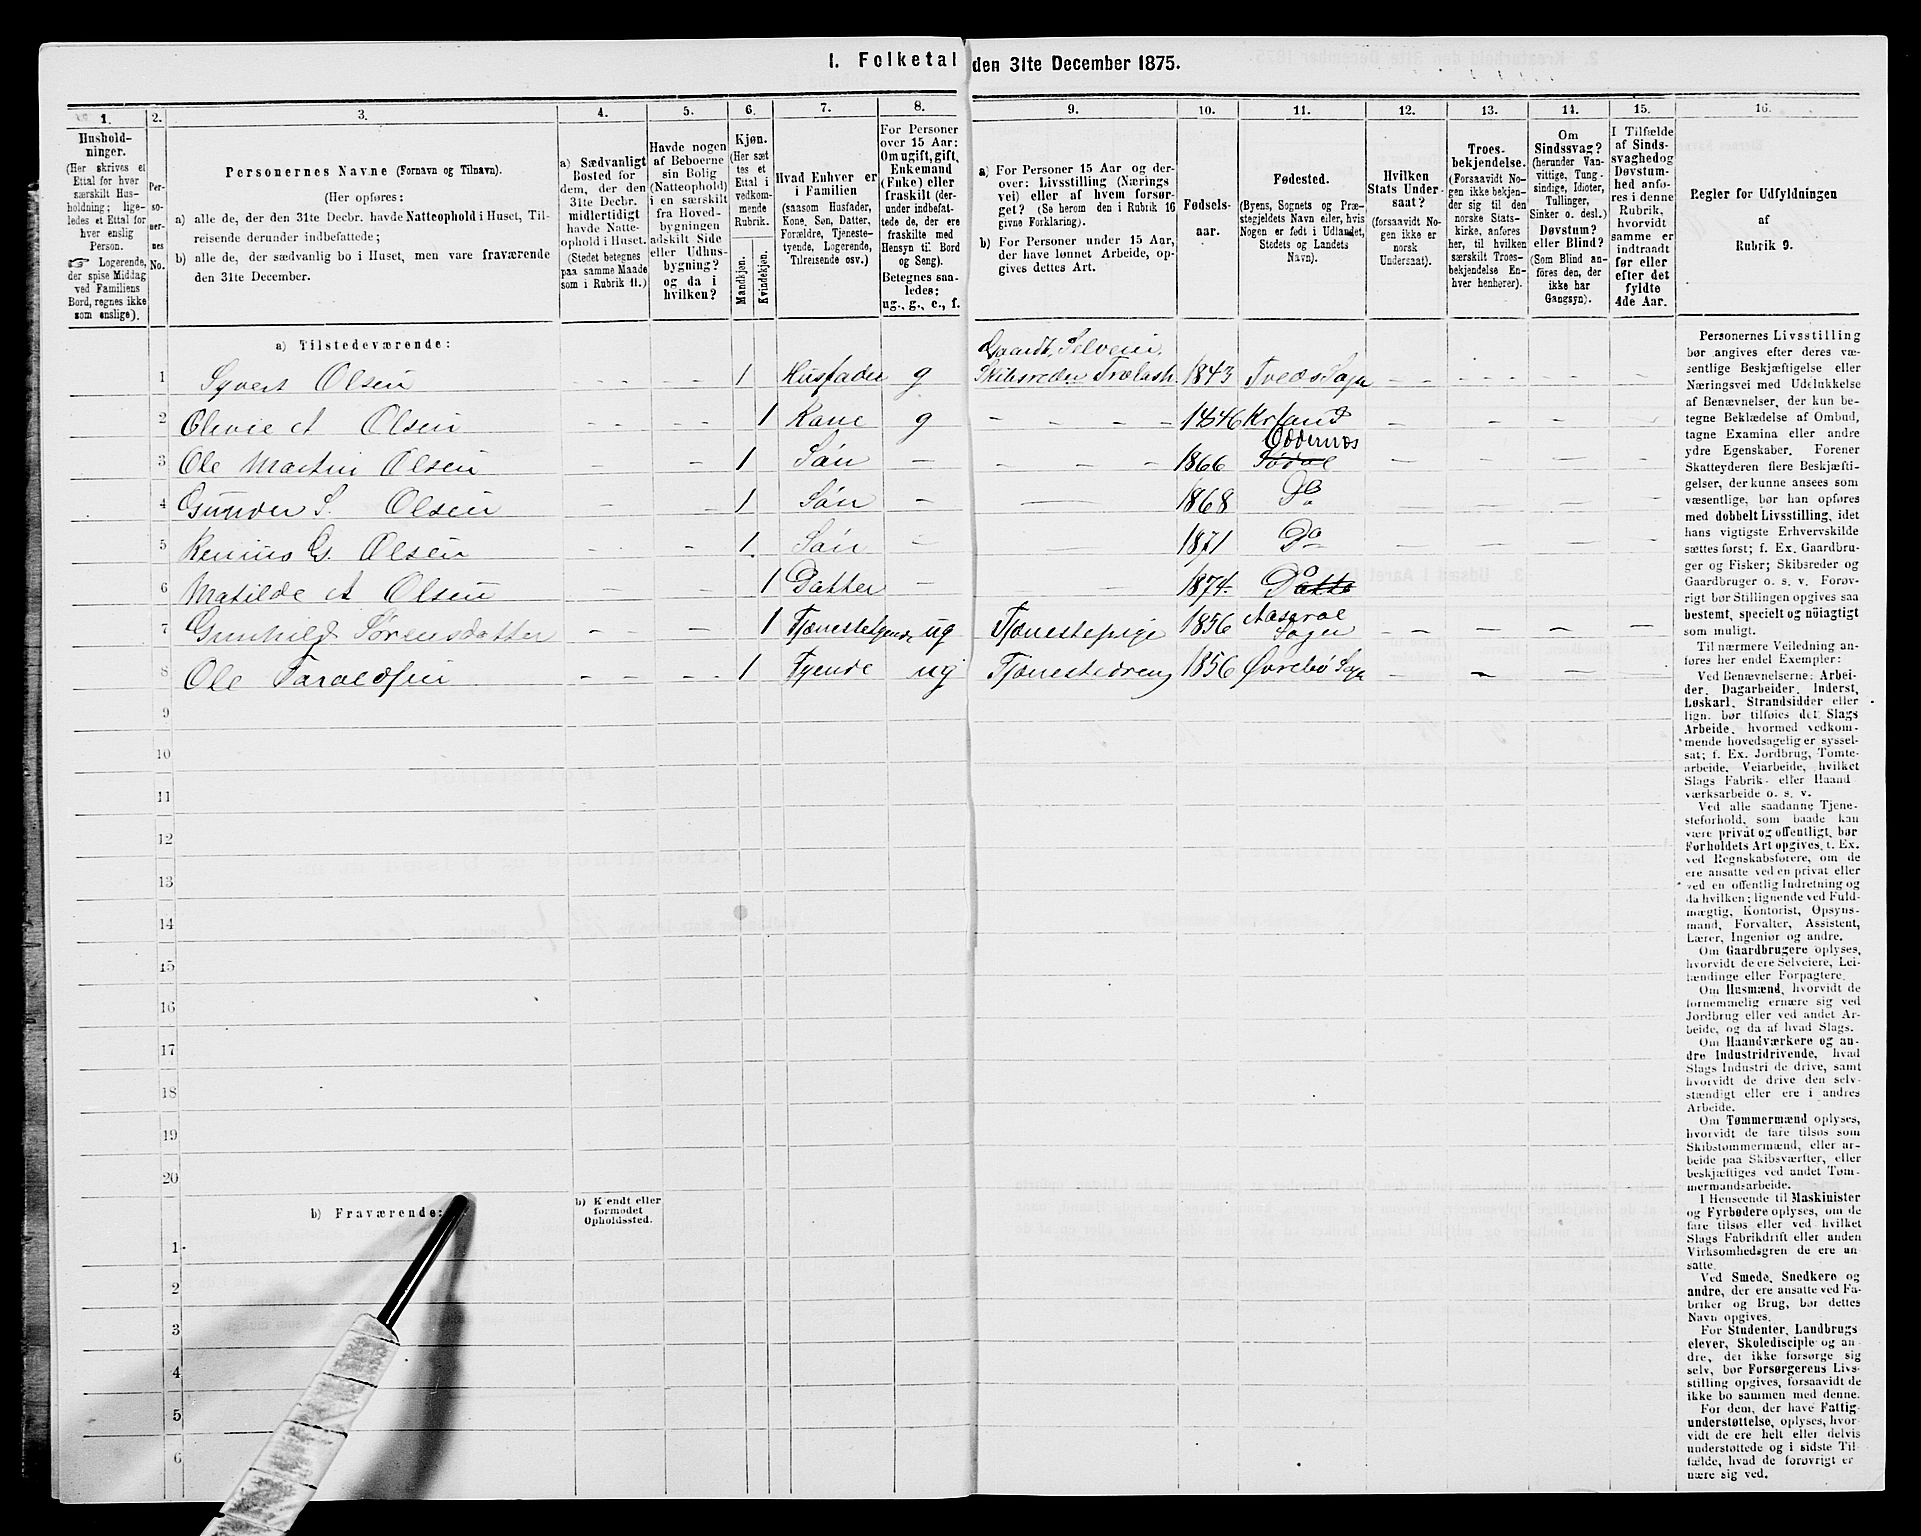 I. Folketal den 31te December 1875.
1. 2. 3. 4. 5. 6. 7. 8. 9. 10. 11. 12. 13. 14. 15. 16.
Hushold-
ninger.
(Her skrives et
Ettal for hver
særskilt Hus-
holdning; lige-
ledes et Ettal for
hver enslig
Person.
☞ Logerende,
der spise Middag
ved Familiens
Bord, regnes ikke
som enslige).
Per-
so-
ner-
nes
No.
Personernes Navne (Fornavn og Tilnavn).
(Her opføres:
a) alle de, der den 31te Decbr. havde Natteophold i Huset, Til-
reisende derunder indbefattede;
b) alle de, der sædvanlig bo i Huset, men vare fraværende
den 31te December.
a) Sædvanligt
Bosted for
dem, der den
31te Decbr.
midlertidigt
havde Natte-
ophold i Huset.
(Stedet betegnes
paa samme Maade
som i Rubrik 11.)
Havde nogen
af Beboerne
sin Bolig
(Natteophold)
i en særskilt
fra Hoved-
bygningen
adskilt Side
eller Udhus-
bygning?
og da i
hvilken?
Kjøn.
(Her sæt-
tes et
Ettal i
vedkom-
mende
Rubrik.
Mandkjøn.
Kvindekjøn.
Hvad Enhver er
i Familien
(saasom Husfader,
Kone, Søn, Datter,
Forældre, Tjeneste-
tyende, Logerende,
Tilreisende osv.)
For Personer
over 15 Aar:
Om ugift, gift,
Enkemand
(Enke) eller
fraskilt (der-
under indbefat-
tede de, der ere
fraskilte med
Hensyn til Bord
og Seng).
Betegnes saa-
ledes:
ug., g., e., f.
a) For Personer 15 Aar og der-
over: Livsstilling (Nærings
vei) eller af hvem forsør-
get? (Se herom den i Rubrik 16
givne Forklaring).
b) For Personer under 15 Aar,
der have lønnet Arbeide, op-
gives dettes Art.
Fødsels-
aar.
Fødested.
(Byens, Sognets og Præ-
stegjeldets Navn eller, hvis
Nogen er født i Udlandet,
Stedets og Landets
Navn).
Hvilken
Stats Under-
saat?
(forsaavidt No-
gen ikke er
norsk
Undersaat).
Troes-
bekjendelse.
(Forsaavidt No-
gen ikke bekjen-
der sig til den
norske Stats-
kirke, anføres
her, til hvilken
særskilt Troes-
bekjendelse En-
hver henhører).
Om
Sindssvag?
(herunder Van-
vittige, Tung-
sindige, Idioter,
Tullinger,
Sinker o. desl.)
Døvstum?
eller Blind?
(Som Blind an-
føres den, der
ikke har
Gangsyn).
I Tilfælde
af Sinds-
svaghed og
Døvstum-
hed anfø-
res i denne
Rubrik,
hvorvidt
samme er
indtraadt
før eller
efter det
fyldte
4de Aar.
Regler for Udfyldningen
af
Rubrik 9.
a) Tilstedeværende:
Gaardb, Selveier,
1 Syvert Olsen - - 1 Husfader g Skibsreder Trælasth 1843 Tveds Sogn - - - -
2 Olevie A Olsen - - 1 Kone g - - 1846 Krsand - - -
3 Ole Martin Olsen - - 1 Søn - - 1866 Oddernæs Sødal - - -
4 Gunder S. Olsen - - 1 Søn - - 1868 Do - - - -
5 Olsen - - 1 Søn - - 1871 Do - - - -
6 Matilde A Olsen - - 1 Datter - - 1874 Do - - - -
7 Gunhild Sørensdatter - - 1 Tjenestetyende ug Tjenestepige 1856 Aaseral Sogn - - - -
8 Ole Taraldsen - - 1 Tyende ug Tjenestedreng 1856 Øvrebø Sogn - - - -
9
10
11
12
13
14
15
16
17
18
19
20
b) Fraværende:
b) Kendt eller
formodet
Opholdssted.
1
2
3
4
5
6
Personernes Livsstilling
bør angives efter deres væ-
sentlige Beskjæftigelse eller
Næringsvei med Udelukkelse
af Benævnelser, der kun be-
tegne Beklædelse af Ombud,
tagne Examina eller andre
ydre Egenskaber. Forener
Skatteyderen flere Beskjæfti-
gelser, der kunne ansees som
væsentlige, bør han opføres
med dobbelt Livsstilling, idet
hans vigtigste Erhvervskilde
sættes først; f. Ex. Gaardbru-
ger og Fisker; Skibsreder og
Gaardbruger o. s. v. Forøv-
rigt bør Stillingen opgives saa
bestemt, specielt og nöiagtigt
som muligt.
Til nærmere Veiledning an-
føres her endel Exempler:
Ved Benævnelserne: Arbei-
der, Dagarbeider, Inderst,
Løskarl, Strandsidder eller
lign. bør tilføies det Slags
Arbeide, hvormed vedkom-
mende hovedsagelig er syssel-
sat; f. Ex. Jordbrug, Tomte-
arbeide, Veiarbeide, hvilket
Slags Fabrik- eller Haand
værksarbeide o. s. v.
Ved alle saadanne Tjene-
steforhold, som baade kan
være privat og offentligt, bør
Forholdets Art opgives, t. Ex.
ved Regnskabsførere, om de
ere ansatte ved en privat eller
ved en offentlig Indretning og
da hvilken; lignende ved Fuld-
mægtig, Kontorist, Opsyns-
mand, Forvalter, Assistent,
Lærer, Ingeniør og andre.
Om Gaardbrugere oplyses,
hvorvidt de ere Selveiere, Lei-
lændinge eller Forpagtere.
Om Husmænd, hvorvidt de
fornemmelig ernære sig ved
Jordbrug eller ved andet Ar-
beide, og da af hvad Slags.
Om Haandværkere og an-
dre Industridrivende, hvad
Slags Industri de drive, samt
hvorvidt de drive den selv-
stændigt eller ere i andres
Arbeide.
Om Tømmermænd oplyses,
hvorvidt de fare tilsøs som
Skibstømmermænd, eller ar-
beide paa Skibsværfter, eller
beskjæftiges ved andet Tøm-
mermandsarbeide.
I Henseende til Maskinister
og Fyrbødere oplyses, om de
fare tilsøs eller ved hvilket
Slags Fabrikdrift eller anden
Virksomhedsgren de ere an-
satte.
Ved Smede, Snedkere og
andre, der ere ansatte ved Fa-
briker og Brug, bør dettes
Navn opgives.
For Studenter, Landbrugs
elever, Skoledisciple og an-
dre, der ikke forsørge sig
selv, bør Forsørgerens Livs-
stilling opgives, forsaavidt de
ikke bo sammen med denne.
For dem, der have Fattig-
understøttelse, oplyses, hvor-
vidt de ere helt eller delvis
understøttede og i sidste Til-
fælde, hvad de forøvrigt er-
nære sig ved.